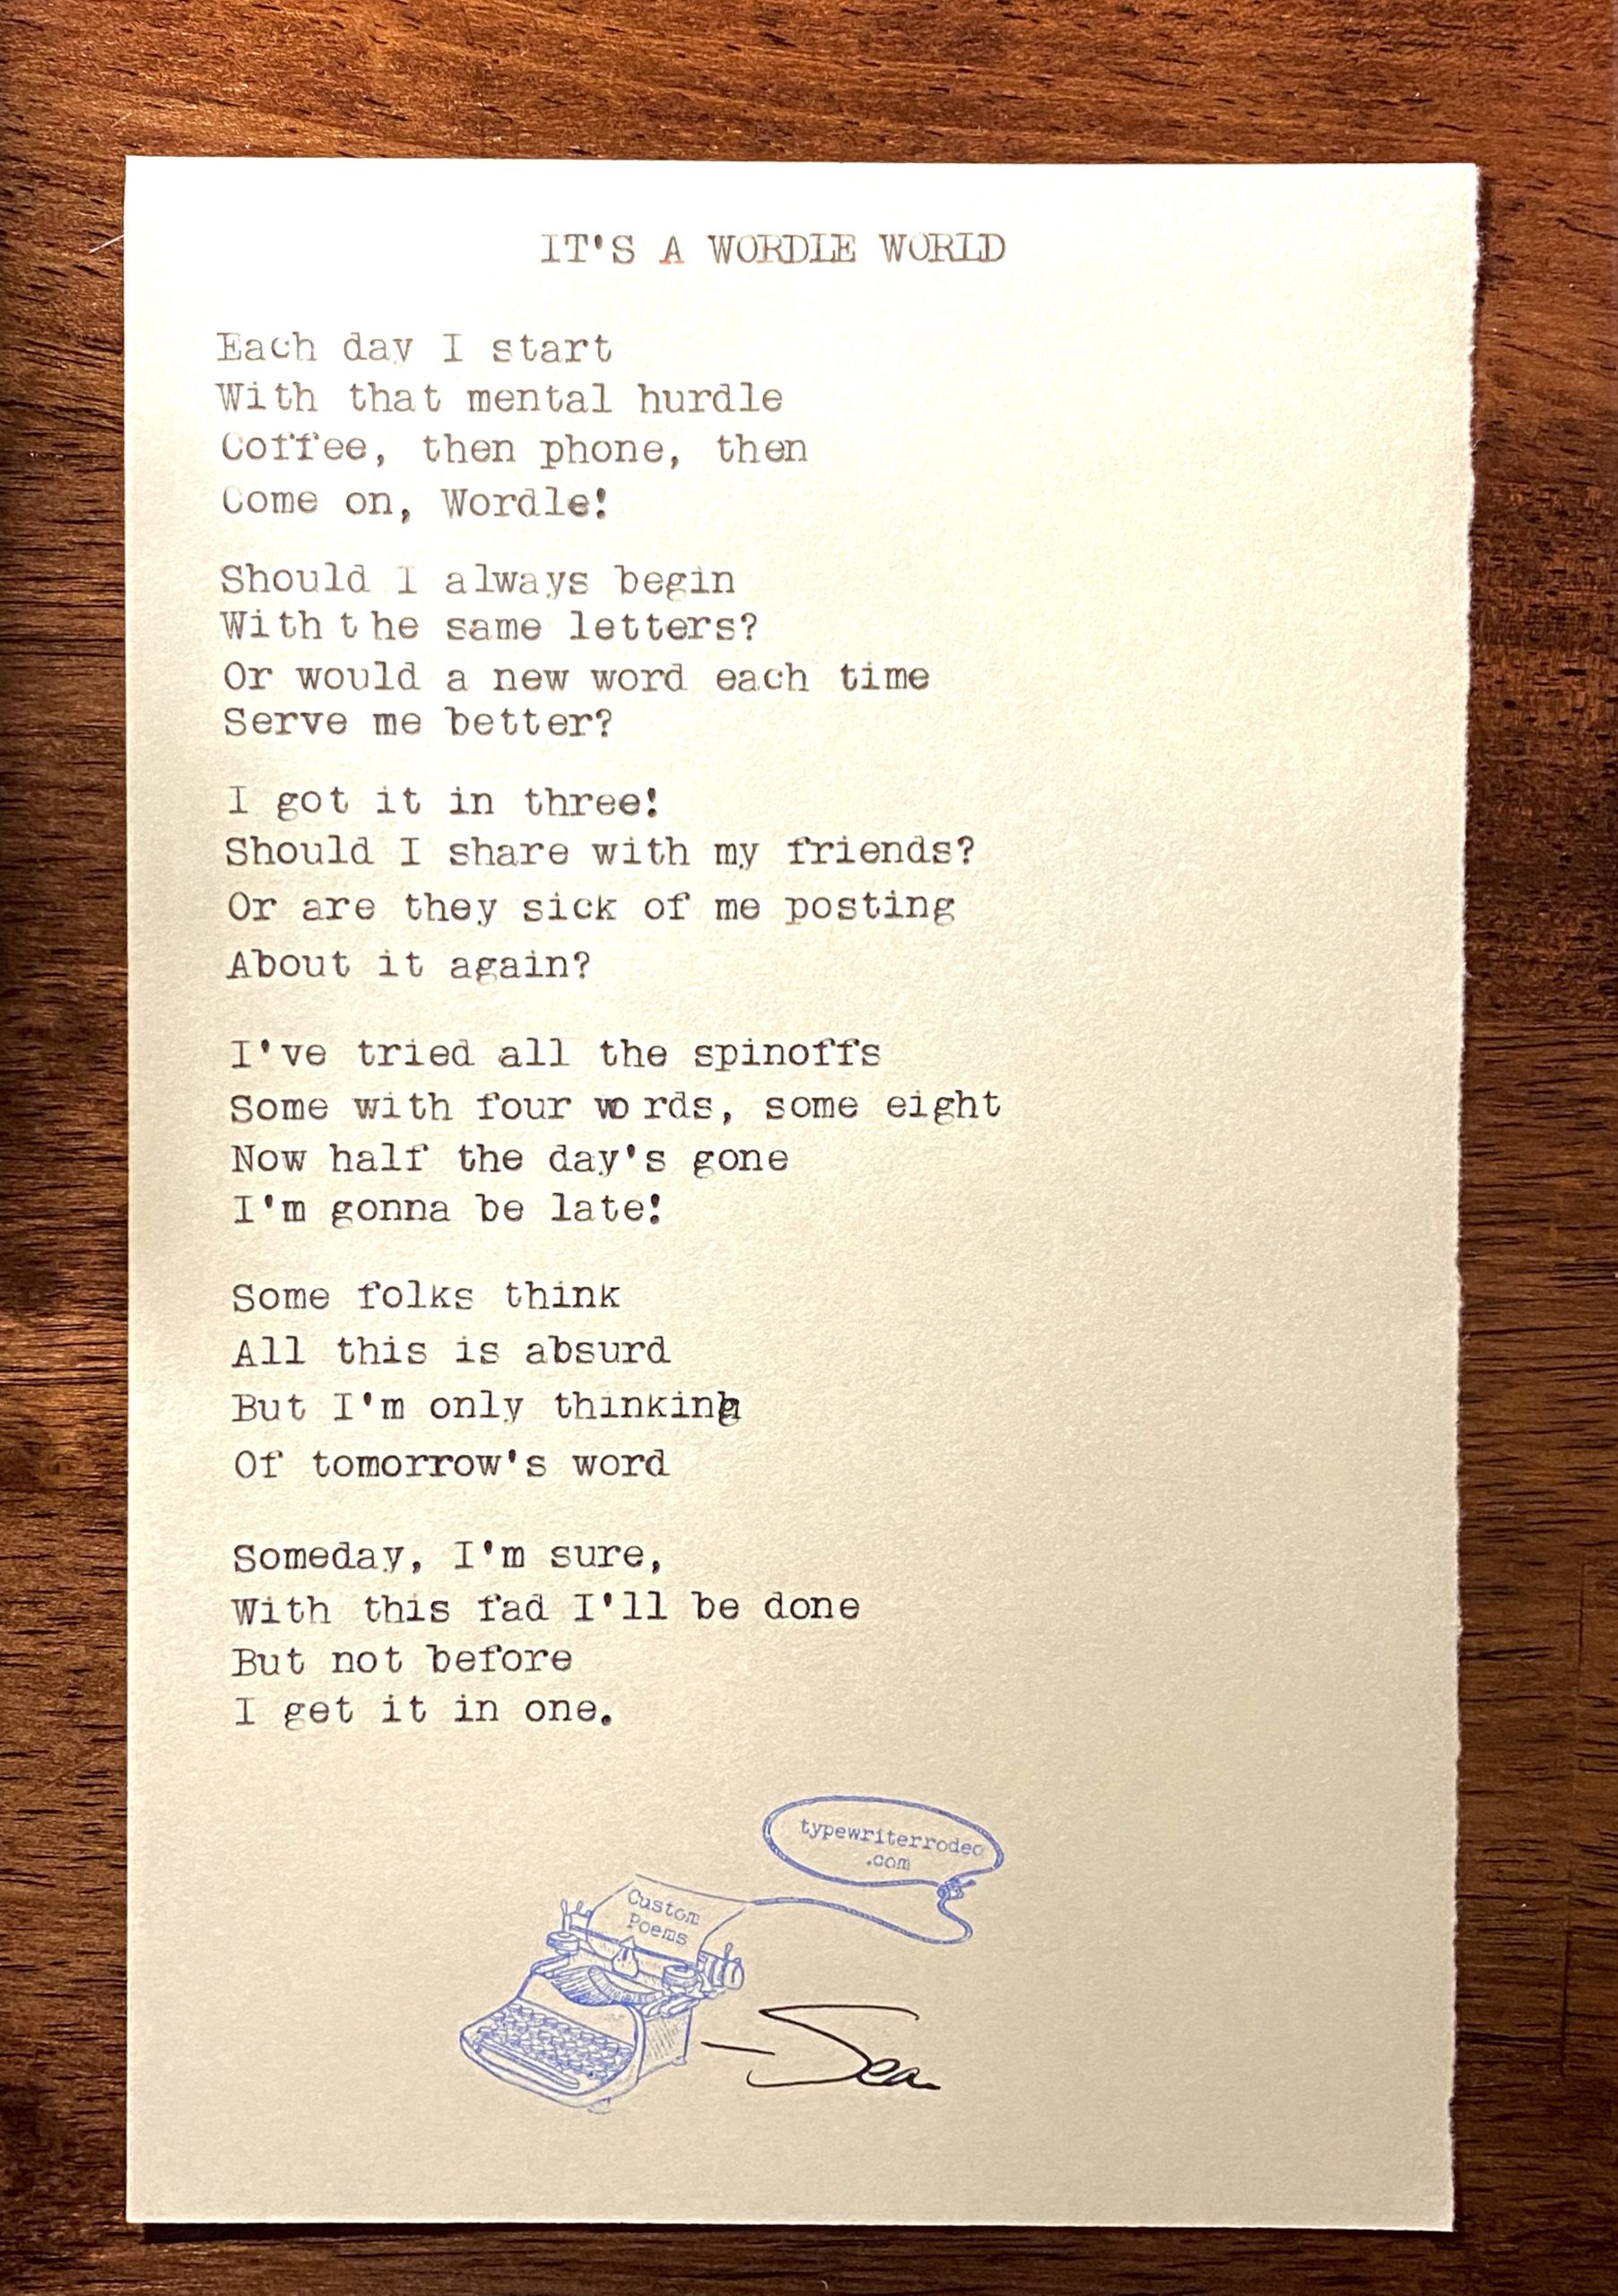 IT'S A WORDLE WORLD
Each day I start
With that mental hurdle
Coffee, then phone, then
Come on, Wordle!
Should I always begin
With the same letters?
Or would a new word each time
Serve me better?
I got it in three!
Should I share with my friends?
Or are they sick of me posting
About it again?
I've tried all the spinoffs
Some with four words, some eight
Now half the day's gone
I'm gonna be late!
Some folks think
All this is absurd
But I'm only thinking
Of tomorrow's word
Someday, I'm sure,
With this fad I'll be done
But not before
I get it in one.
typewriterrodeo
.com
Custom
Poems
—Sean